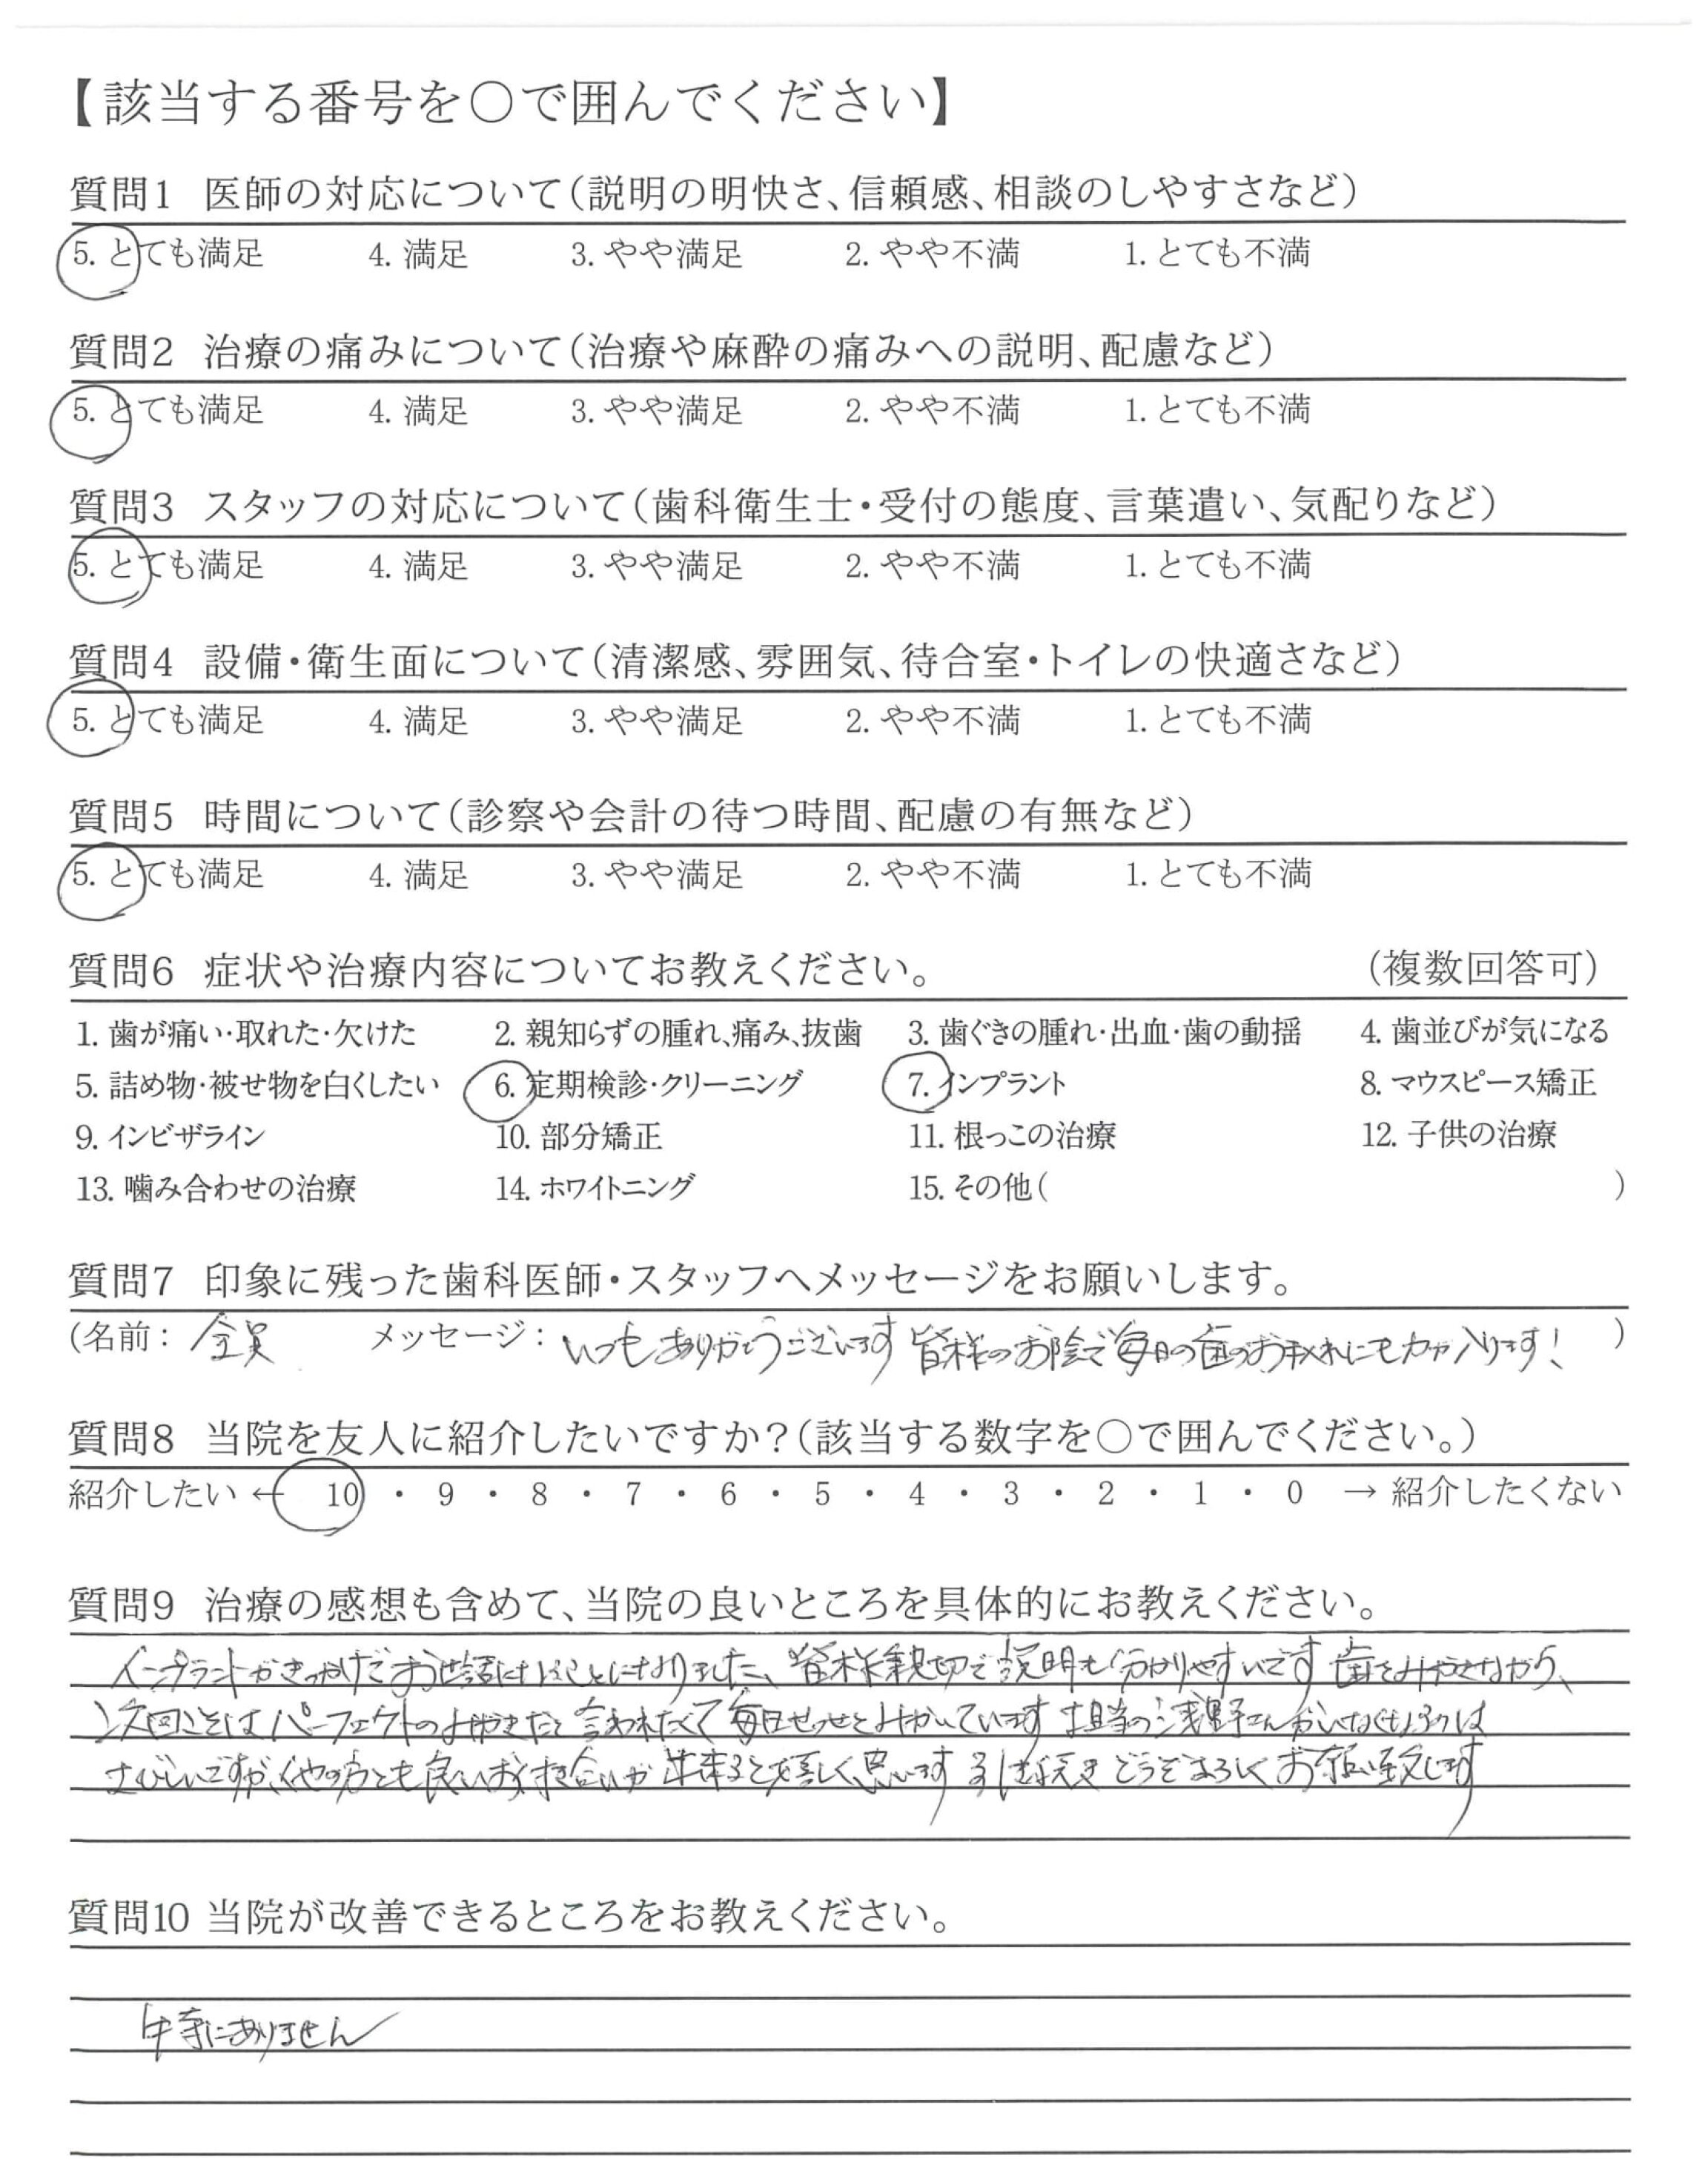 【該当する番号を○で囲んでください】
質問1 医師の対応について(説明の明快さ、信頼感、相談のしやすさなど)
5. とても満足 4. 満足 3. やや満足 2. やや不満 1. とても不満
質問2 治療の痛みについて(治療や麻酔の痛みへの説明、配慮など)
5. とても満足 4. 満足 3. やや満足 2. やや不満 1. とても不満
質問3 スタッフの対応について(歯科衛生士・受付の態度、言葉遣い、気配りなど)
5. とても満足 4. 満足 3. やや満足 2. やや不満 1. とても不満
質問4 設備・衛生面について(清潔感、雰囲気、待合室・トイレの快適さなど)
5. とても満足 4. 満足 3. やや満足 2. やや不満 1. とても不満
質問5 時間について(診察や会計の待つ時間、配慮の有無など)
5. とても満足 4. 満足 3. やや満足 2. やや不満 1. とても不満
質問6 症状や治療内容についてお教えください。 (複数回答可)
1. 歯が痛い・取れた・欠けた 2. 親知らずの腫れ、痛み、抜歯 3. 歯ぐきの腫れ・出血・歯の動揺 4. 歯並びが気になる
5. 詰め物・被せ物を白くしたい 6. 定期検診・クリーニング 7. インプラント 8. マウスピース矯正
9. インビザライン 10. 部分矯正 11. 根っこの治療 12. 子供の治療
13. 噛み合わせの治療 14. ホワイトニング 15. その他( )
質問7 印象に残った歯科医師・スタッフへメッセージをお願いします。
(名前: 全員 メッセージ: いつもありがとうございます 皆様のお陰で毎日の歯のお手入れにも力が入ります! )
質問8 当院を友人に紹介したいですか?(該当する数字を○で囲んでください。)
紹介したい ← 10 ・ 9 ・ 8 ・ 7 ・ 6 ・ 5 ・ 4 ・ 3 ・ 2 ・ 1 ・ 0 → 紹介したくない
質問9 治療の感想も含めて、当院の良いところを具体的にお教えください。
インプラントがきっかけでお世話になることになりました、皆様親切で説明も分かりやすいです 歯をみがきながら、
次回こそはパーフェクトのみがきだと言われたくて毎日せっせとみがいています 担当の浅野さんがいなくなるのは
さびしいですが、他の方とも良いお付き合いが出来ると嬉しく思います 引き続きどうぞよろしくお願い致します
質問10 当院が改善できるところをお教えください。
特にありません